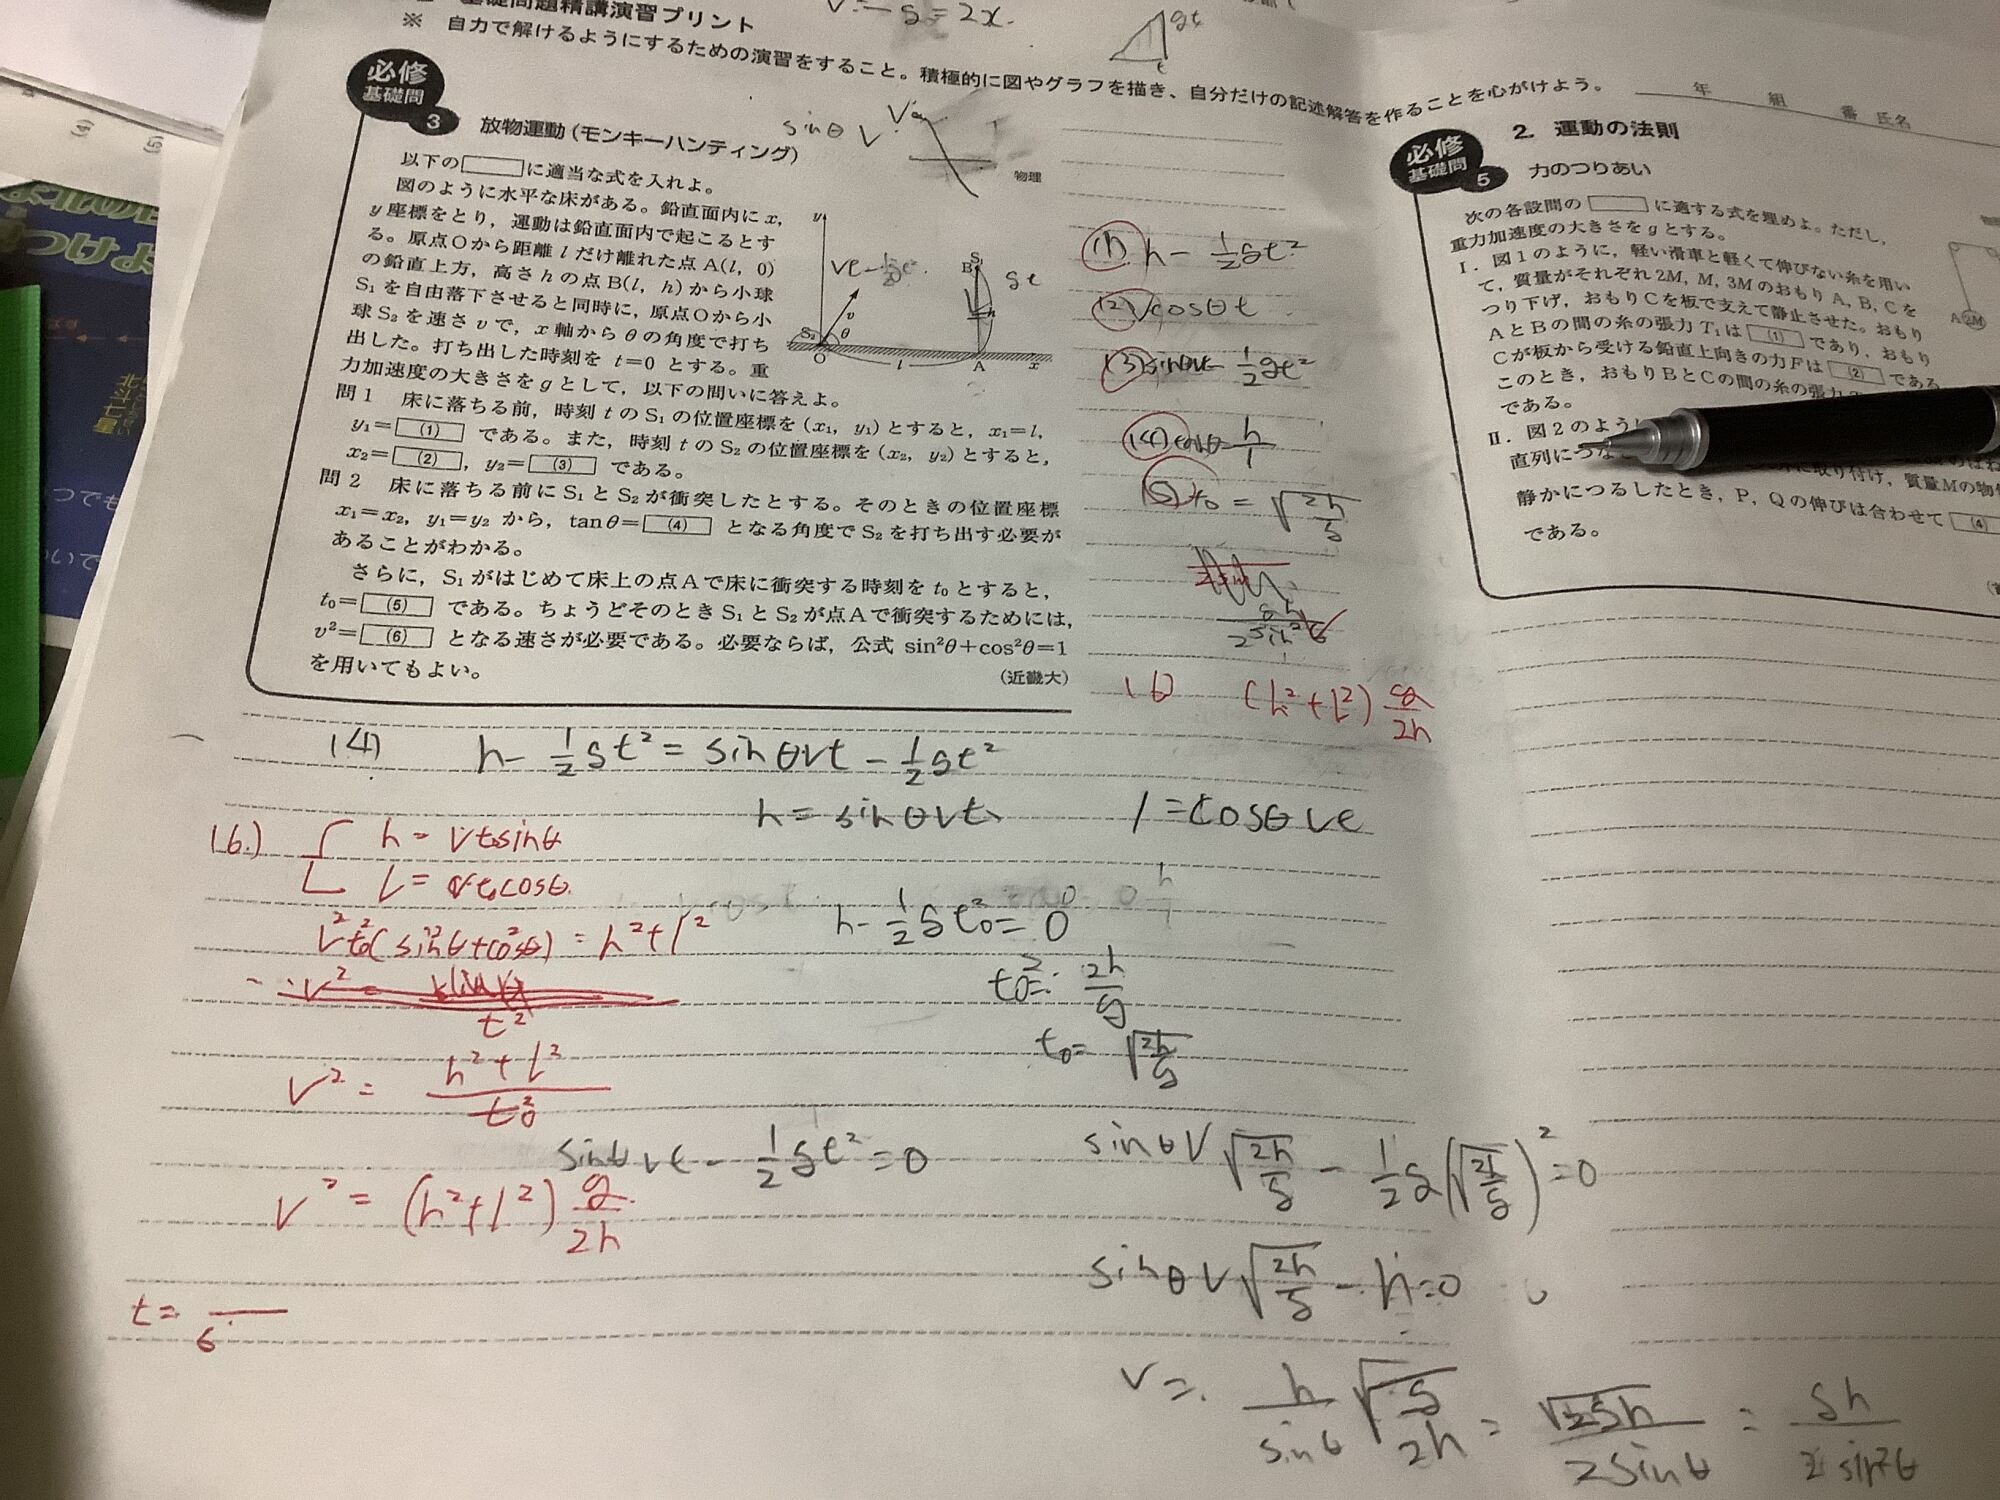 基礎問題精講演習プリント
※ 自力で解けるようにするための演習をすること。積極的に図やグラフを描き、自分だけの記述解答を作ることを心がけよう。
年 組 番 氏名
必修
基礎問
3
放物運動(モンキーハンティング)
物理
以下の□に適当な式を入れよ。
図のように水平な床がある。鉛直面内に x,
y 座標をとり，運動は鉛直面内で起こるとす
る。原点Oから距離 l だけ離れた点 A(l, 0)
の鉛直上方，高さ h の点 B(l, h) から小球
S₁ を自由落下させると同時に，原点Oから小
球 S₂ を速さ v で，x 軸から θ の角度で打ち
出した。打ち出した時刻を t=0 とする。重
力加速度の大きさを g として，以下の問いに答えよ。
問1 床に落ちる前，時刻 t の S₁ の位置座標を (x₁, y₁) とすると，x₁=l，
y₁=(1) である。また，時刻 t の S₂ の位置座標を (x₂, y₂) とすると，
x₂=(2)，y₂=(3) である。
問2 床に落ちる前に S₁ と S₂ が衝突したとする。そのときの位置座標
x₁=x₂，y₁=y₂ から，tanθ=(4) となる角度で S₂ を打ち出す必要が
あることがわかる。
さらに，S₁ がはじめて床上の点Aで床に衝突する時刻を t₀ とすると，
t₀=(5) である。ちょうどそのとき S₁ と S₂ が点Aで衝突するためには，
v²=(6) となる速さが必要である。必要ならば，公式 sin²θ+cos²θ=1
を用いてもよい。
(近畿大)
y
S₁
B
h
v
θ
S₂
O
l
A
x
gt
t
sinθ v
gt
(1) h - 1/2 gt²
(2) vcosθt
(3) sinθvt - 1/2 gt²
(4) tanθ = h/l
(5) t₀ = √(2h/g)
gh/2sin²θ
(6) (h²+l²) g/2h
(4) h - 1/2 gt² = sinθvt - 1/2 gt²
h = sinθvt
l = cosθvt
(6) h = vt₀sinθ
l = vt₀cosθ
v²t₀²(sin²θ+cos²θ) = h²+l²
v² = (h²+l²)/t₀²
v² = (h²+l²) g/2h
t =
h - 1/2 gt₀² = 0
t₀² = 2h/g
t₀ = √(2h/g)
sinθvt - 1/2 gt² = 0
sinθv√(2h/g) - 1/2 g(√(2h/g))² = 0
sinθv√(2h/g) - h = 0
v = h/sinθ √(g/2h) = √(2gh)/2sinθ = gh/2sin²θ
2. 運動の法則
必修
基礎問
5
力のつりあい
次の各設問の□に適する式を埋めよ。ただし，
重力加速度の大きさを g とする。
Ⅰ．図1のように，軽い滑車と軽くて伸びない糸を用い
て，質量がそれぞれ 2M, M, 3M のおもり A, B, C を
つり下げ，おもりCを板で支えて静止させた。おもり
AとBの間の糸の張力 T₁ は (1) であり，おもり
Cが板から受ける鉛直上向きの力Fは (2) である
このとき，おもりBとCの間の糸の張力
である。
Ⅱ．図2のように
直列につな
に取り付け，質量Mの物
静かにつるしたとき，P, Q の伸びは合わせて (4)
である。
A 2M